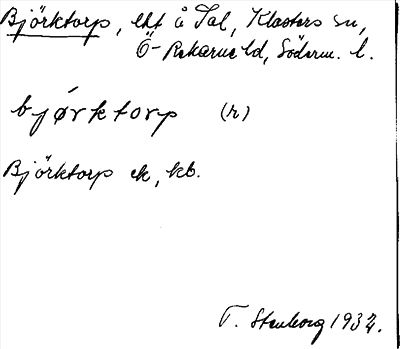 Björktorp, lht å Tal, Klosters sn,
Ö-Rekarne hd, Söderm. l.
bjørktorp (r)
Björktorp ek, kb.
T. Stenborg 1932.